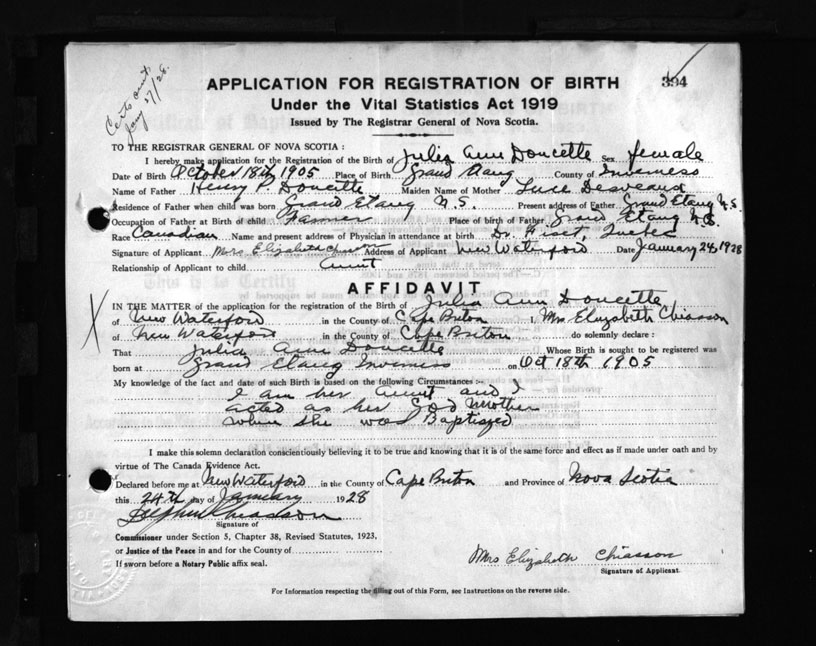 Certs omit.
Jany 27/28.
394
APPLICATION FOR REGISTRATION OF BIRTH
Under the Vital Statistics Act 1919
Issued by The Registrar General of Nova Scotia.
TO THE REGISTRAR GENERAL OF NOVA SCOTIA :
I hereby make application for the Registration of the Birth of Julia Ann Doucette Sex female
Date of Birth October 18th 1905 Place of Birth Grand Etang County of Inverness
Name of Father Henry P. Doucette Maiden Name of Mother Luce Desveaux
Residence of Father when child was born Grand Etang N.S. Present address of Father Grand Etang N.S.
Occupation of Father at Birth of child Farmer Place of birth of Father Grand Etang N.S.
Race Canadian Name and present address of Physician in attendance at birth Dr. Fiset, Quebec
Signature of Applicant Mrs Elizabeth Chiasson Address of Applicant New Waterford Date January 24, 1928
Relationship of Applicant to child Aunt
AFFIDAVIT
IN THE MATTER of the application for the registration of the Birth of Julia Ann Doucette
of New Waterford in the County of Cape Briton , Mrs Elizabeth Chiasson
of New Waterford in the County of Cape Briton do solemnly declare :
That Julia Ann Doucette Whose Birth is sought to be registered was
born at Grand Etang Inverness on Oct 18th 1905
My knowledge of the fact and date of such Birth is based on the following Circumstances :-
I am her Aunt and I
acted as her God Mother
when she was Baptized
I make this solemn declaration conscientiously believing it to be true and knowing that it is of the same force and effect as if made under oath and by
virtue of The Canada Evidence Act.
Declared before me at New Waterford in the County of Cape Briton and Province of Nova Scotia
this 24th day of January 1928
Signature of
Commissioner under Section 5, Chapter 38, Revised Statutes, 1923,
or Justice of the Peace in and for the County of
If sworn before a Notary Public affix seal.
Mrs Elizabeth Chiasson
Signature of Applicant.
For Information respecting the filling out of this Form, see Instructions on the reverse side.